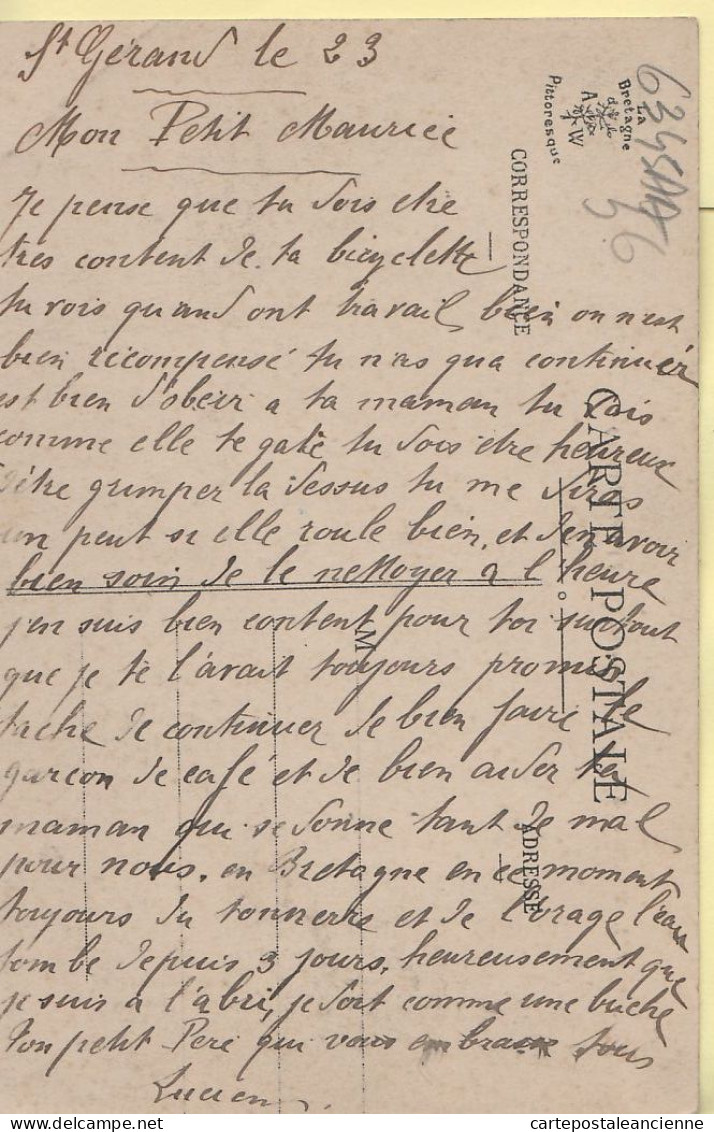 St Gérand le 23
Mon Petit Maurice
Je pense que tu dois etre
tres content de ta bicyclette
tu vois quand ont travail bien on n'est
bien récompensé tu n'as qua continuér
est bien d'obeir a ta maman tu vois
comme elle te gate tu dois etre heureux
d'être grimper la dessus tu me diras
un peut si elle roule bien, et d'en avoir
bien soin de le nettoyer a l'heure
j'en suis bien content pour toi surtout
que je te l'avait toujours promis
tache de continuer de bien faire le
garcon de café et de bien aider ta
maman qui se donne tant de mal
pour nous, en Bretagne en ce moment
toujours du tonnerre et de l'orage l'eau
tombe depuis 3 jours, heureusement que
je suis a l'abri, je dort comme une buche
Ton petit Pere qui vous embrasse tous
Lucien
La
Bretagne
A W
Pittoresque
CORRESPONDANCE
CARTE POSTALE
M
ADRESSE
56
cartepostaleancienne.com